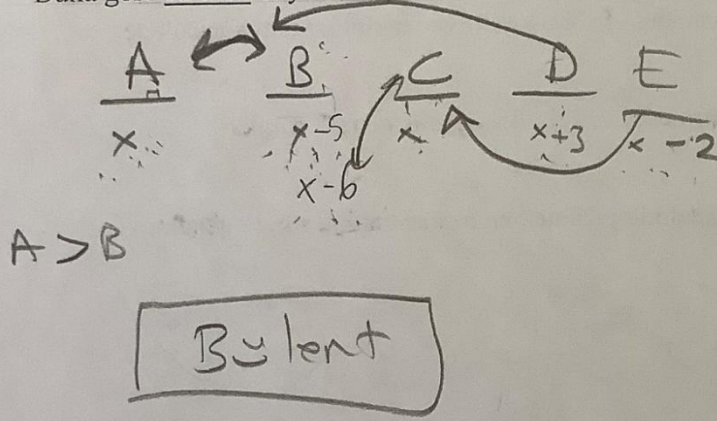 A B C D E
x x-5 x x+3 x-2
x-6
A > B
Bülent